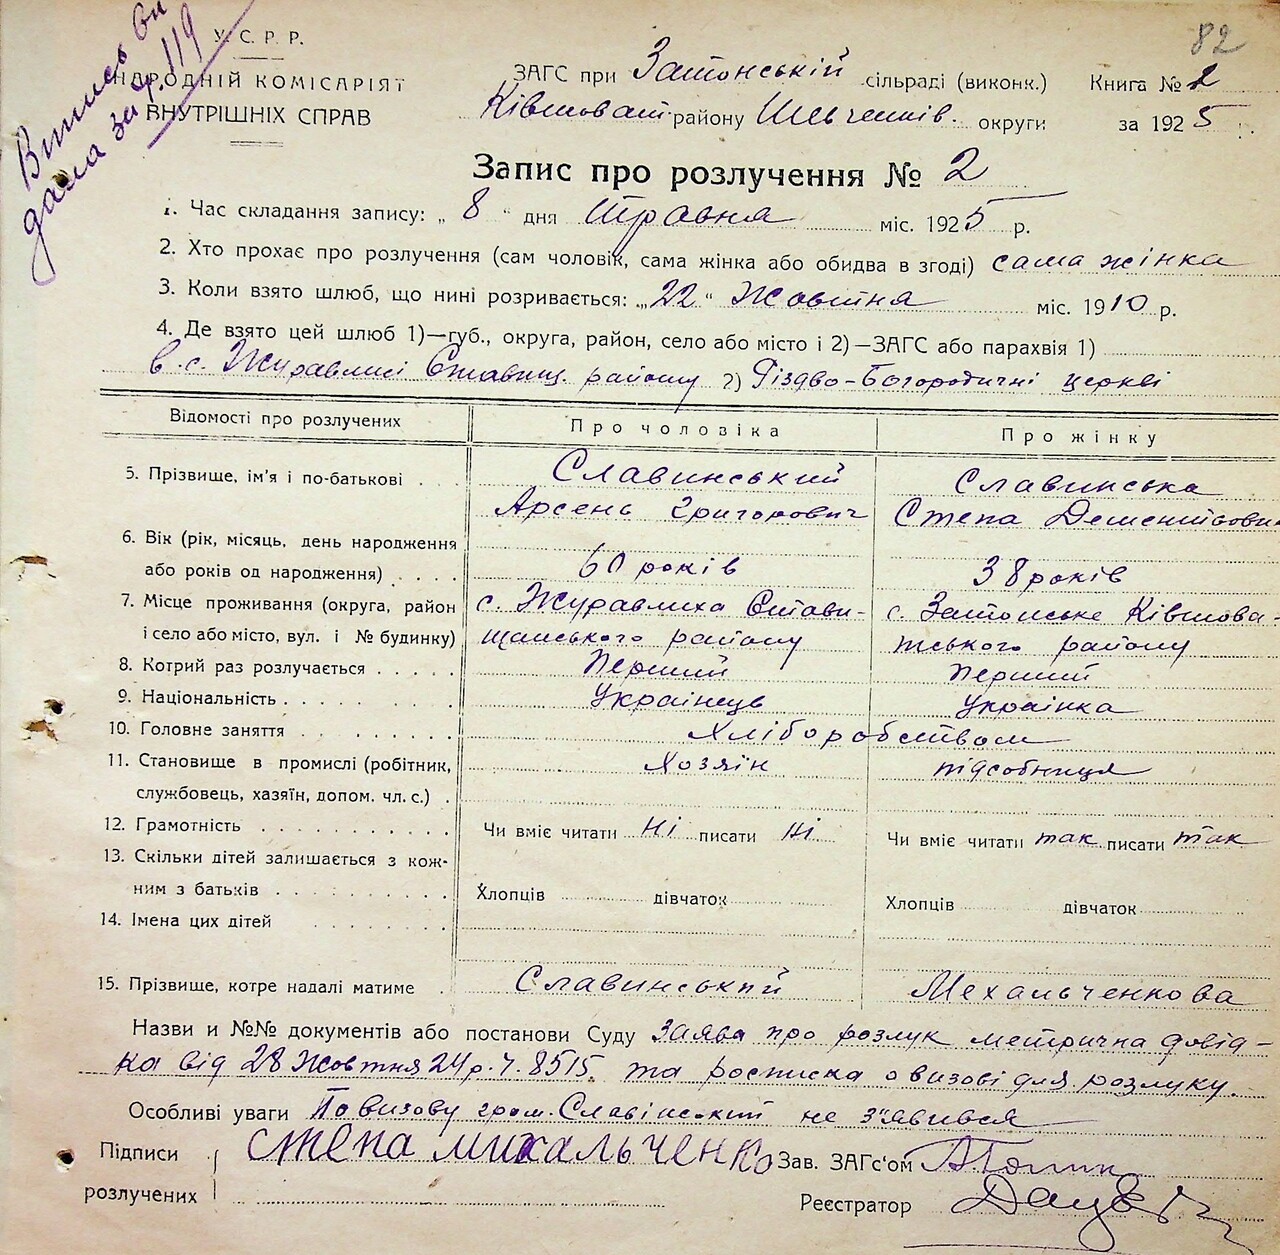 82
Витись ви
дана за р. 119
У. С. Р. Р.
НАРОДНІЙ КОМІСАРІЯТ
ВНУТРІШНІХ СПРАВ
ЗАГС при Затонській сільраді (виконк.) Книга № 2
Ківшоват. району Шевченків. округи за 1925 р.
Запис про розлучення № 2
1. Час складання запису: „ 8 “ дня Травня міс. 1925 р.
2. Хто прохає про розлучення (сам чоловік, сама жінка або обидва в згоді) сама жінка
3. Коли взято шлюб, що нині розривається: „22“ Жовтня міс. 1910 р.
4. Де взято цей шлюб 1)—губ., округа, район, село або місто і 2)—ЗАГС або парахвія 1)
в с. Журавлисі Ставищ. району 2) Різдво-Богородичні церкві
Відомості про розлучених Про чоловіка Про жінку
5. Прізвище, ім'я і по-батькові . . . Славинський Славинська
Арсень Григорович Степа Дементівовн
6. Вік (рік, місяць, день народження
або років од народження) . . . . 60 років 38 років
7. Місце проживання (округа, район с. Журавлиха Стави- с. Затонське Ківшова-
і село або місто, вул. і № будинку) щанського району тського району
8. Котрий раз розлучається . . . . . Перший Перший
9. Національність . . . . . . . . Українець Українка
10. Головне заняття . . . . . . . Хліборобством
11. Становище в промислі (робітник, Хозяін підсобниця
службовець, хазяїн, допом. чл. с.) .
12. Грамотність . . . . . . . . . . Чи вміє читати Ні писати Ні Чи вміє читати так писати так
13. Скільки дітей залишається з кож-
ним з батьків . . . . . . . . . Хлопців дівчаток Хлопців дівчаток
14. Імена цих дітей . . . . . . .
15. Прізвище, котре надалі матиме . Славинський Механьченкова
Назви и №№ документів або постанови Суду Заява про розлук метрична довід-
ка від 28 Жовтня 24 р. ч. 8515 та росписка о визові для розлуку.
Особливі уваги По визову гром. Славінський не з'явився
Підписи степа михальченко Зав. ЗАГс'ом
розлучених Реєстратор